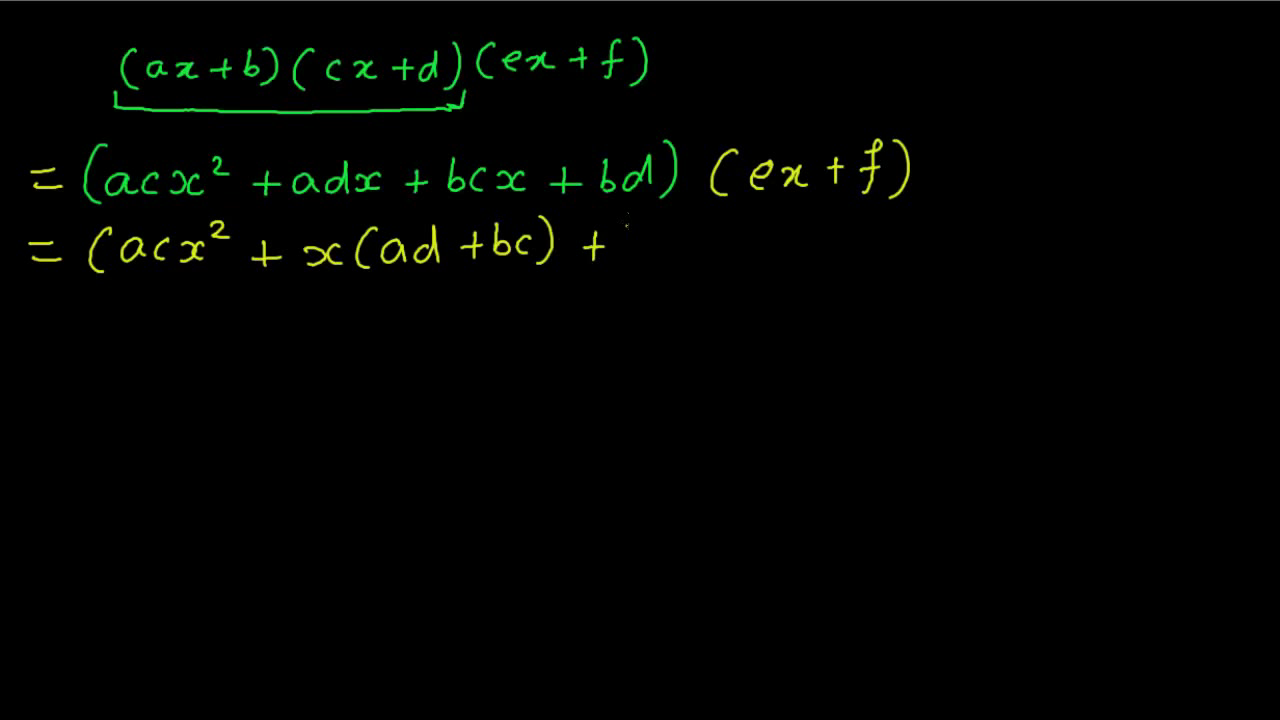 (ax+b)(cx+d)(ex+f)
= (acx² + adx + bcx + bd) (ex + f)
= (acx² + x(ad + bc) +